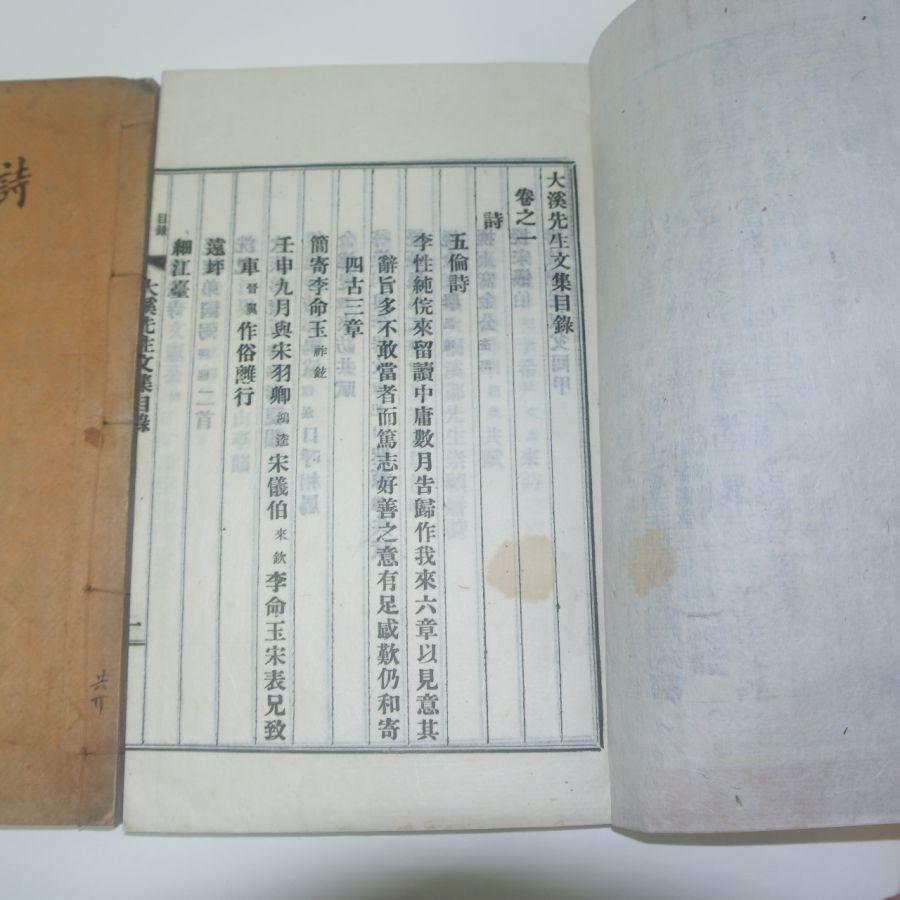 大溪先生文集目錄
卷之一
詩
五倫詩
李性純俒來留讀中庸數月告歸作我來六章以見意其
辭旨多不敢當者而篤志好善之意有足感歎仍和寄
四古三章
簡寄李命玉祚鉉
壬申九月與宋羽卿鴻逵宋儀伯來欽李命玉宋表兄致
車晉翼作俗離行
遠坪
細江臺
目錄
大溪先生文集目錄
一
詩
共